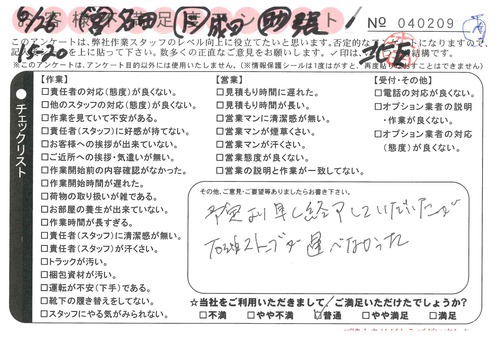 No 040209
このアンケートは、弊社作業スタッフのレベル向上に役立てたいと思います。否定的な
数多くの正直なご意見をお願いします。
(※このアンケートは、アンケート目的以外には使用いたしません。)(※情報保護シールは1度がはすと、再度貼り
チェックリスト
【作業】
□責任者の対応(態度)が良くない。
□他のスタッフの対応(態度)が良くない。
□作業を見ていて不安がある。
□責任者(スタッフ)に好感が持てない。
□お客様への挨拶が出来ていない。
□ご近所への挨拶・気遣いが無い。
□作業開始前の内容確認がなかった。
□作業開始時間が遅れた。
□荷物の取り扱いが雑である。
□お部屋の養生が出来ていない。
□作業時間が長すぎる。
□責任者(スタッフ)に清潔感が無い。
□責任者(スタッフ)が汗くさい。
□トラックが汚い。
□梱包資材が汚い。
□運転が不安(下手)である。
□靴下の履き替えをしてない。
□スタッフにやる気がみられない。
【営業】
□見積もり時間に遅れた。
□見積もり時間が長い。
□営業マンに清潔感が無い。
□営業マンが煙草くさい。
□営業マンが汗くさい。
□営業態度が良くない。
□営業の説明と作業が一致してない。
【受付・その他】
□電話の対応が良くない。
□オプション業者の説明
・作業が良くない。
□オプション業者の対応
(態度)が良くない。
その他、ご意見・ご要望等ありましたらお書き下さい。
予定より早く終了していただいたが
石油ストーブが運べなかった
☆当社をご利用いただきまして/ご満足いただけたでしょうか?
□不満 □やや不満 □普通 □やや満足 □満足